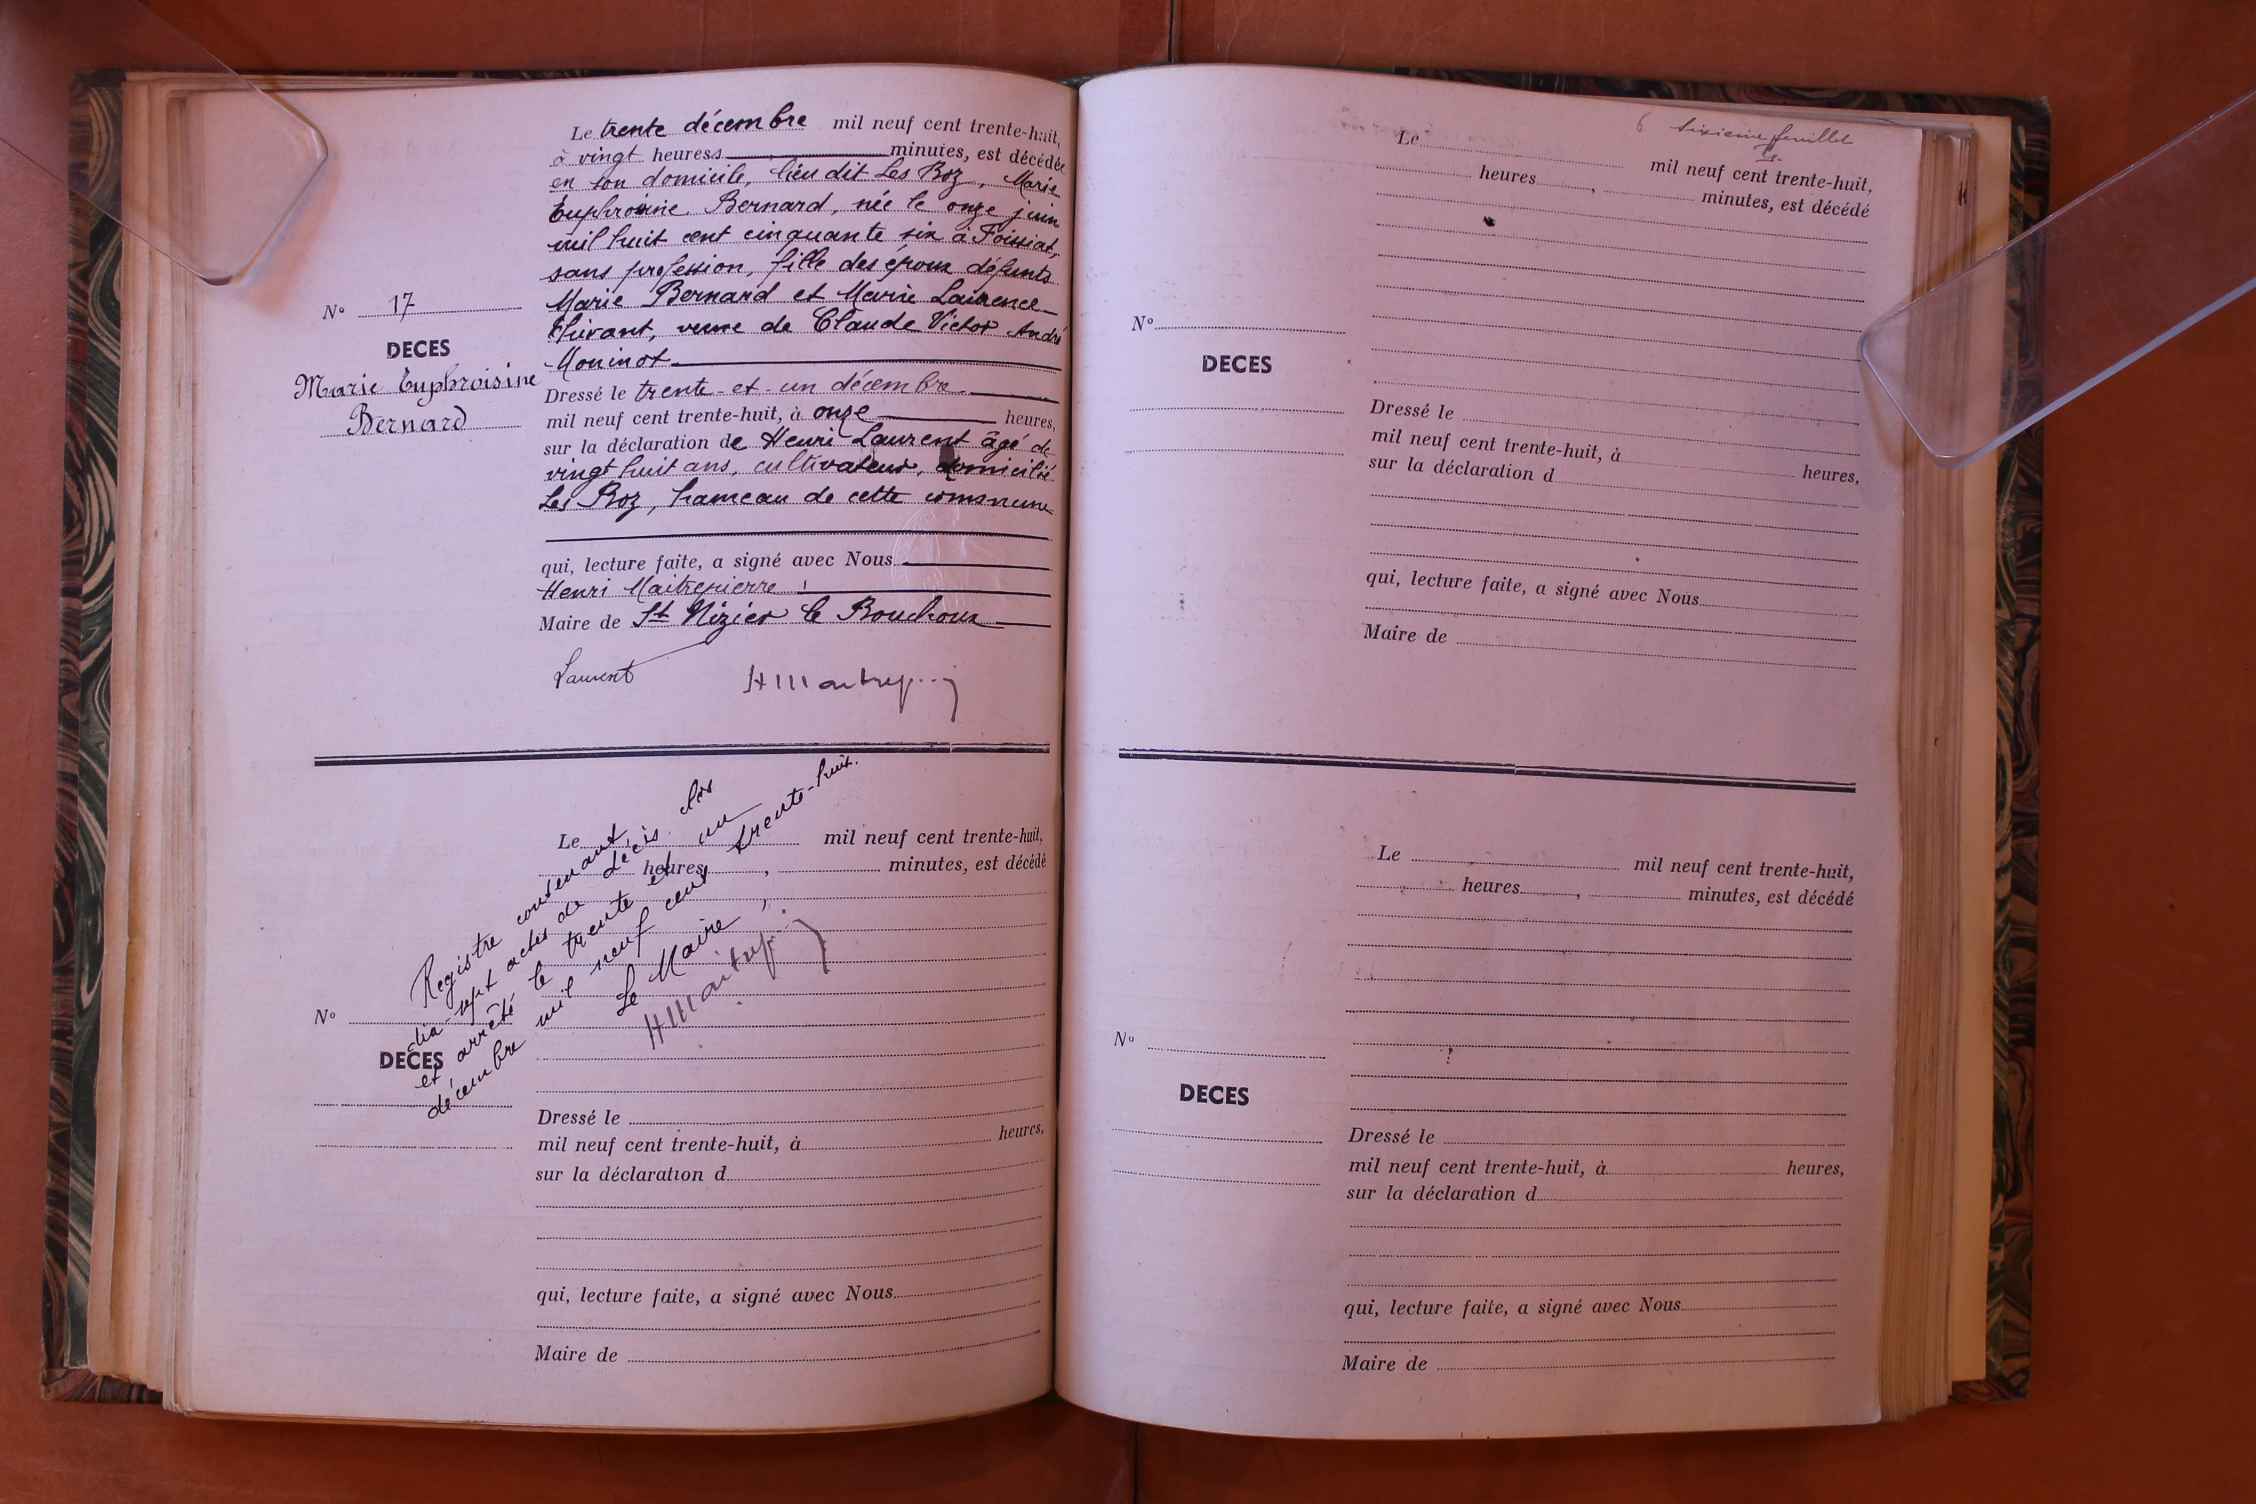 Le trente décembre mil neuf cent trente-huit,
à vingt heures minutes, est décédée
en son domicile, lieu dit Les Boz, Marie
Euphroisine Bernard, née le onze juin
mil huit cent cinquante six à Foissiat,
sans profession, fille des époux défunts
Marie Bernard et Marie Laurence
veuve de Claude Victor André
Moninot
N° 17
DECES
Marie Euphroisine
Bernard
Dressé le trente et un décembre
mil neuf cent trente-huit, à onze heures,
sur la déclaration de Henri Laurent âgé de
vingt huit ans, cultivateur, domicilié
Les Boz, hameau de cette commune
qui, lecture faite, a signé avec Nous
Henri Maitrepierre
Maire de St Nizier le Bouchoux
Laurent
Le mil neuf cent trente-huit,
heures, minutes, est décédé
Registre contenant
dix-sept actes de décès clos
et arrêté le trente et un
décembre mil neuf cent trente-huit.
Le Maire,
N°
DECES
Dressé le
mil neuf cent trente-huit, à heures,
sur la déclaration d
qui, lecture faite, a signé avec Nous
Maire de
6 sixième feuillet
Le mil neuf cent trente-huit,
heures, minutes, est décédé
N°
DECES
Dressé le
mil neuf cent trente-huit, à heures,
sur la déclaration d
qui, lecture faite, a signé avec Nous
Maire de
Le mil neuf cent trente-huit,
heures, minutes, est décédé
N°
DECES
Dressé le
mil neuf cent trente-huit, à heures,
sur la déclaration d
qui, lecture faite, a signé avec Nous
Maire de